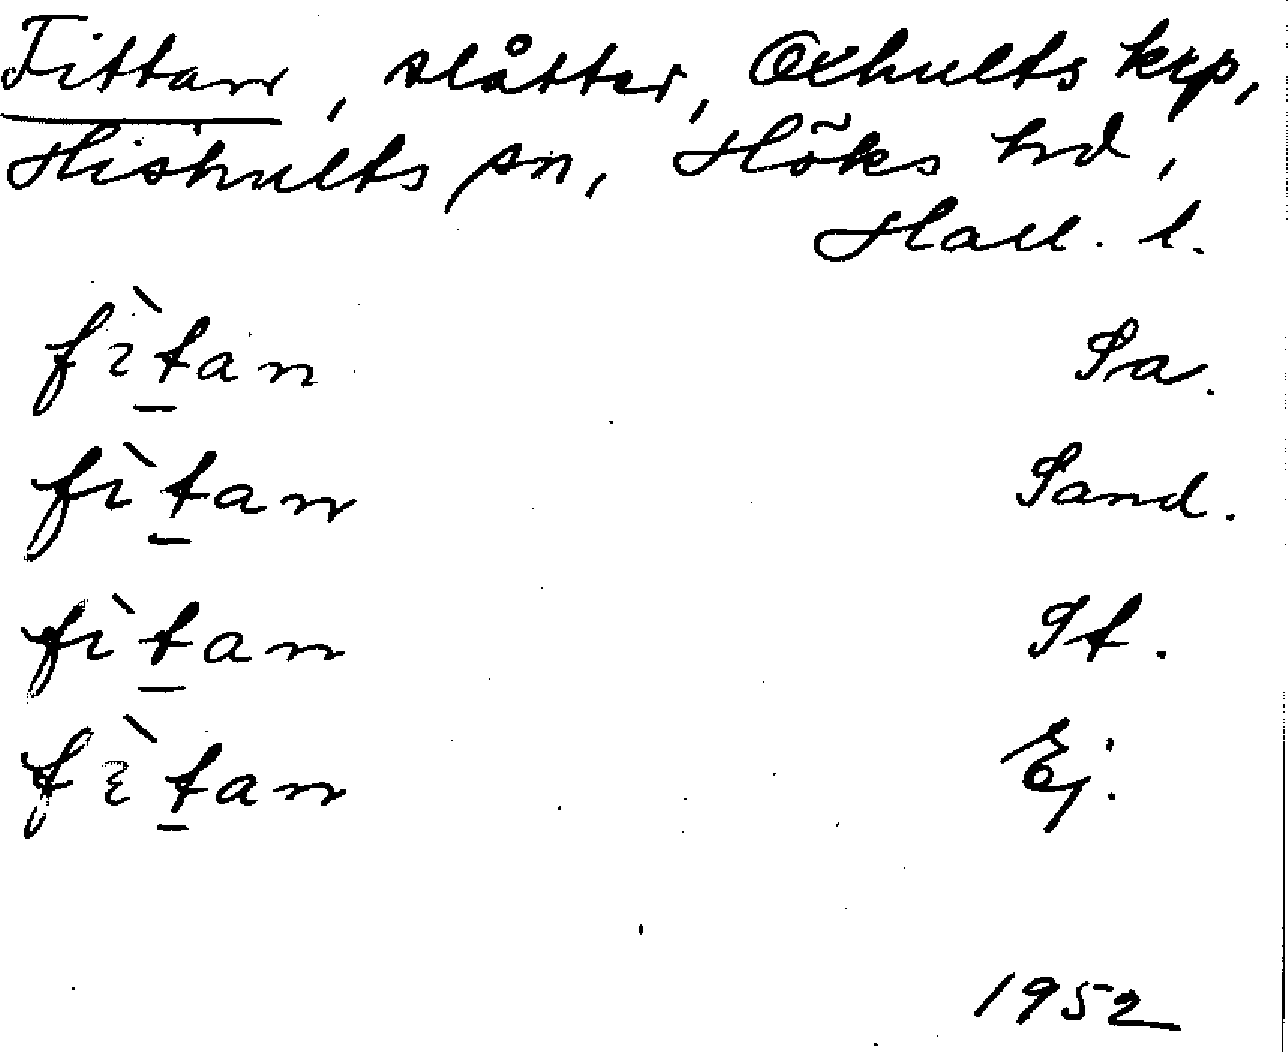 Fittan, slåtter, Oxhults krp,
Hishults sn, Höks hd,
Hall. l.
fìtan Sa.
fìtan Sand.
fìtan St.
fὲtan Ej.
1952